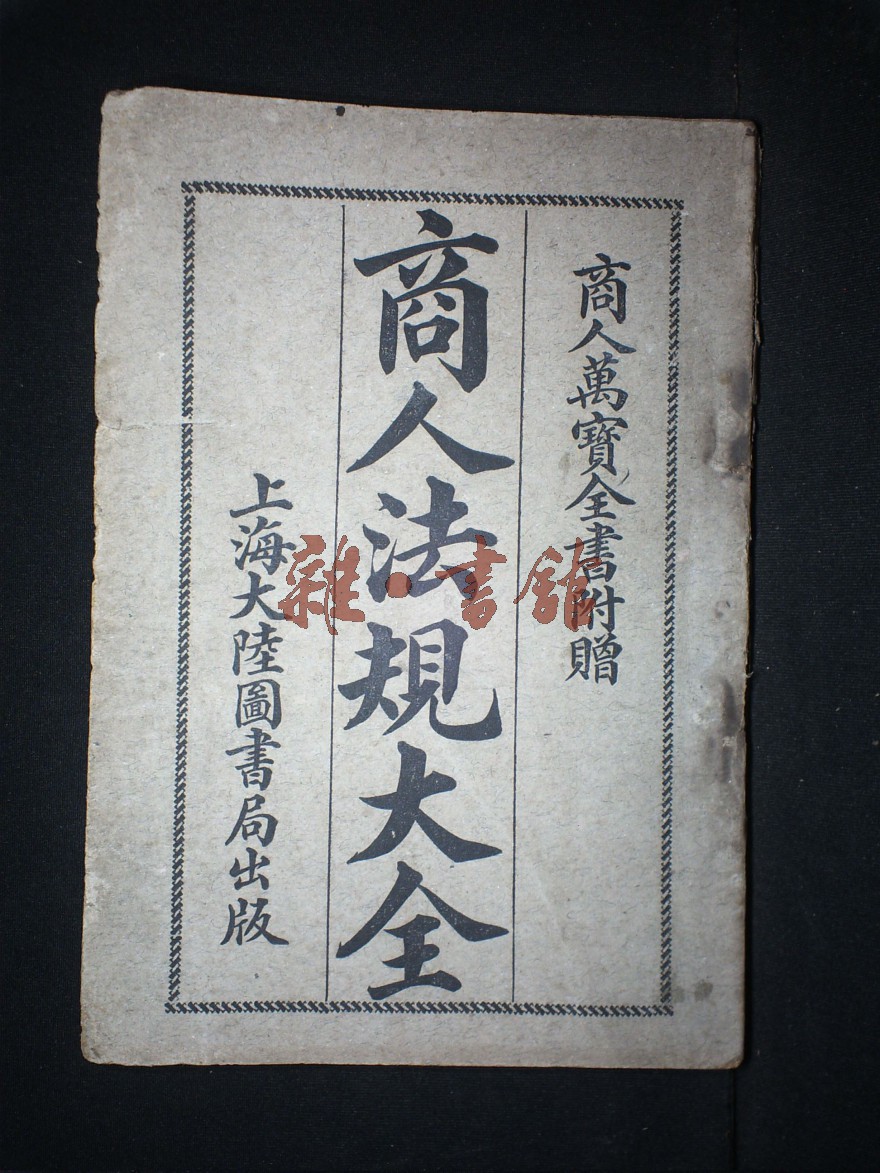 商人萬寶全書附贈
商人法規大全
上海大陸圖書局出版
雜·書館